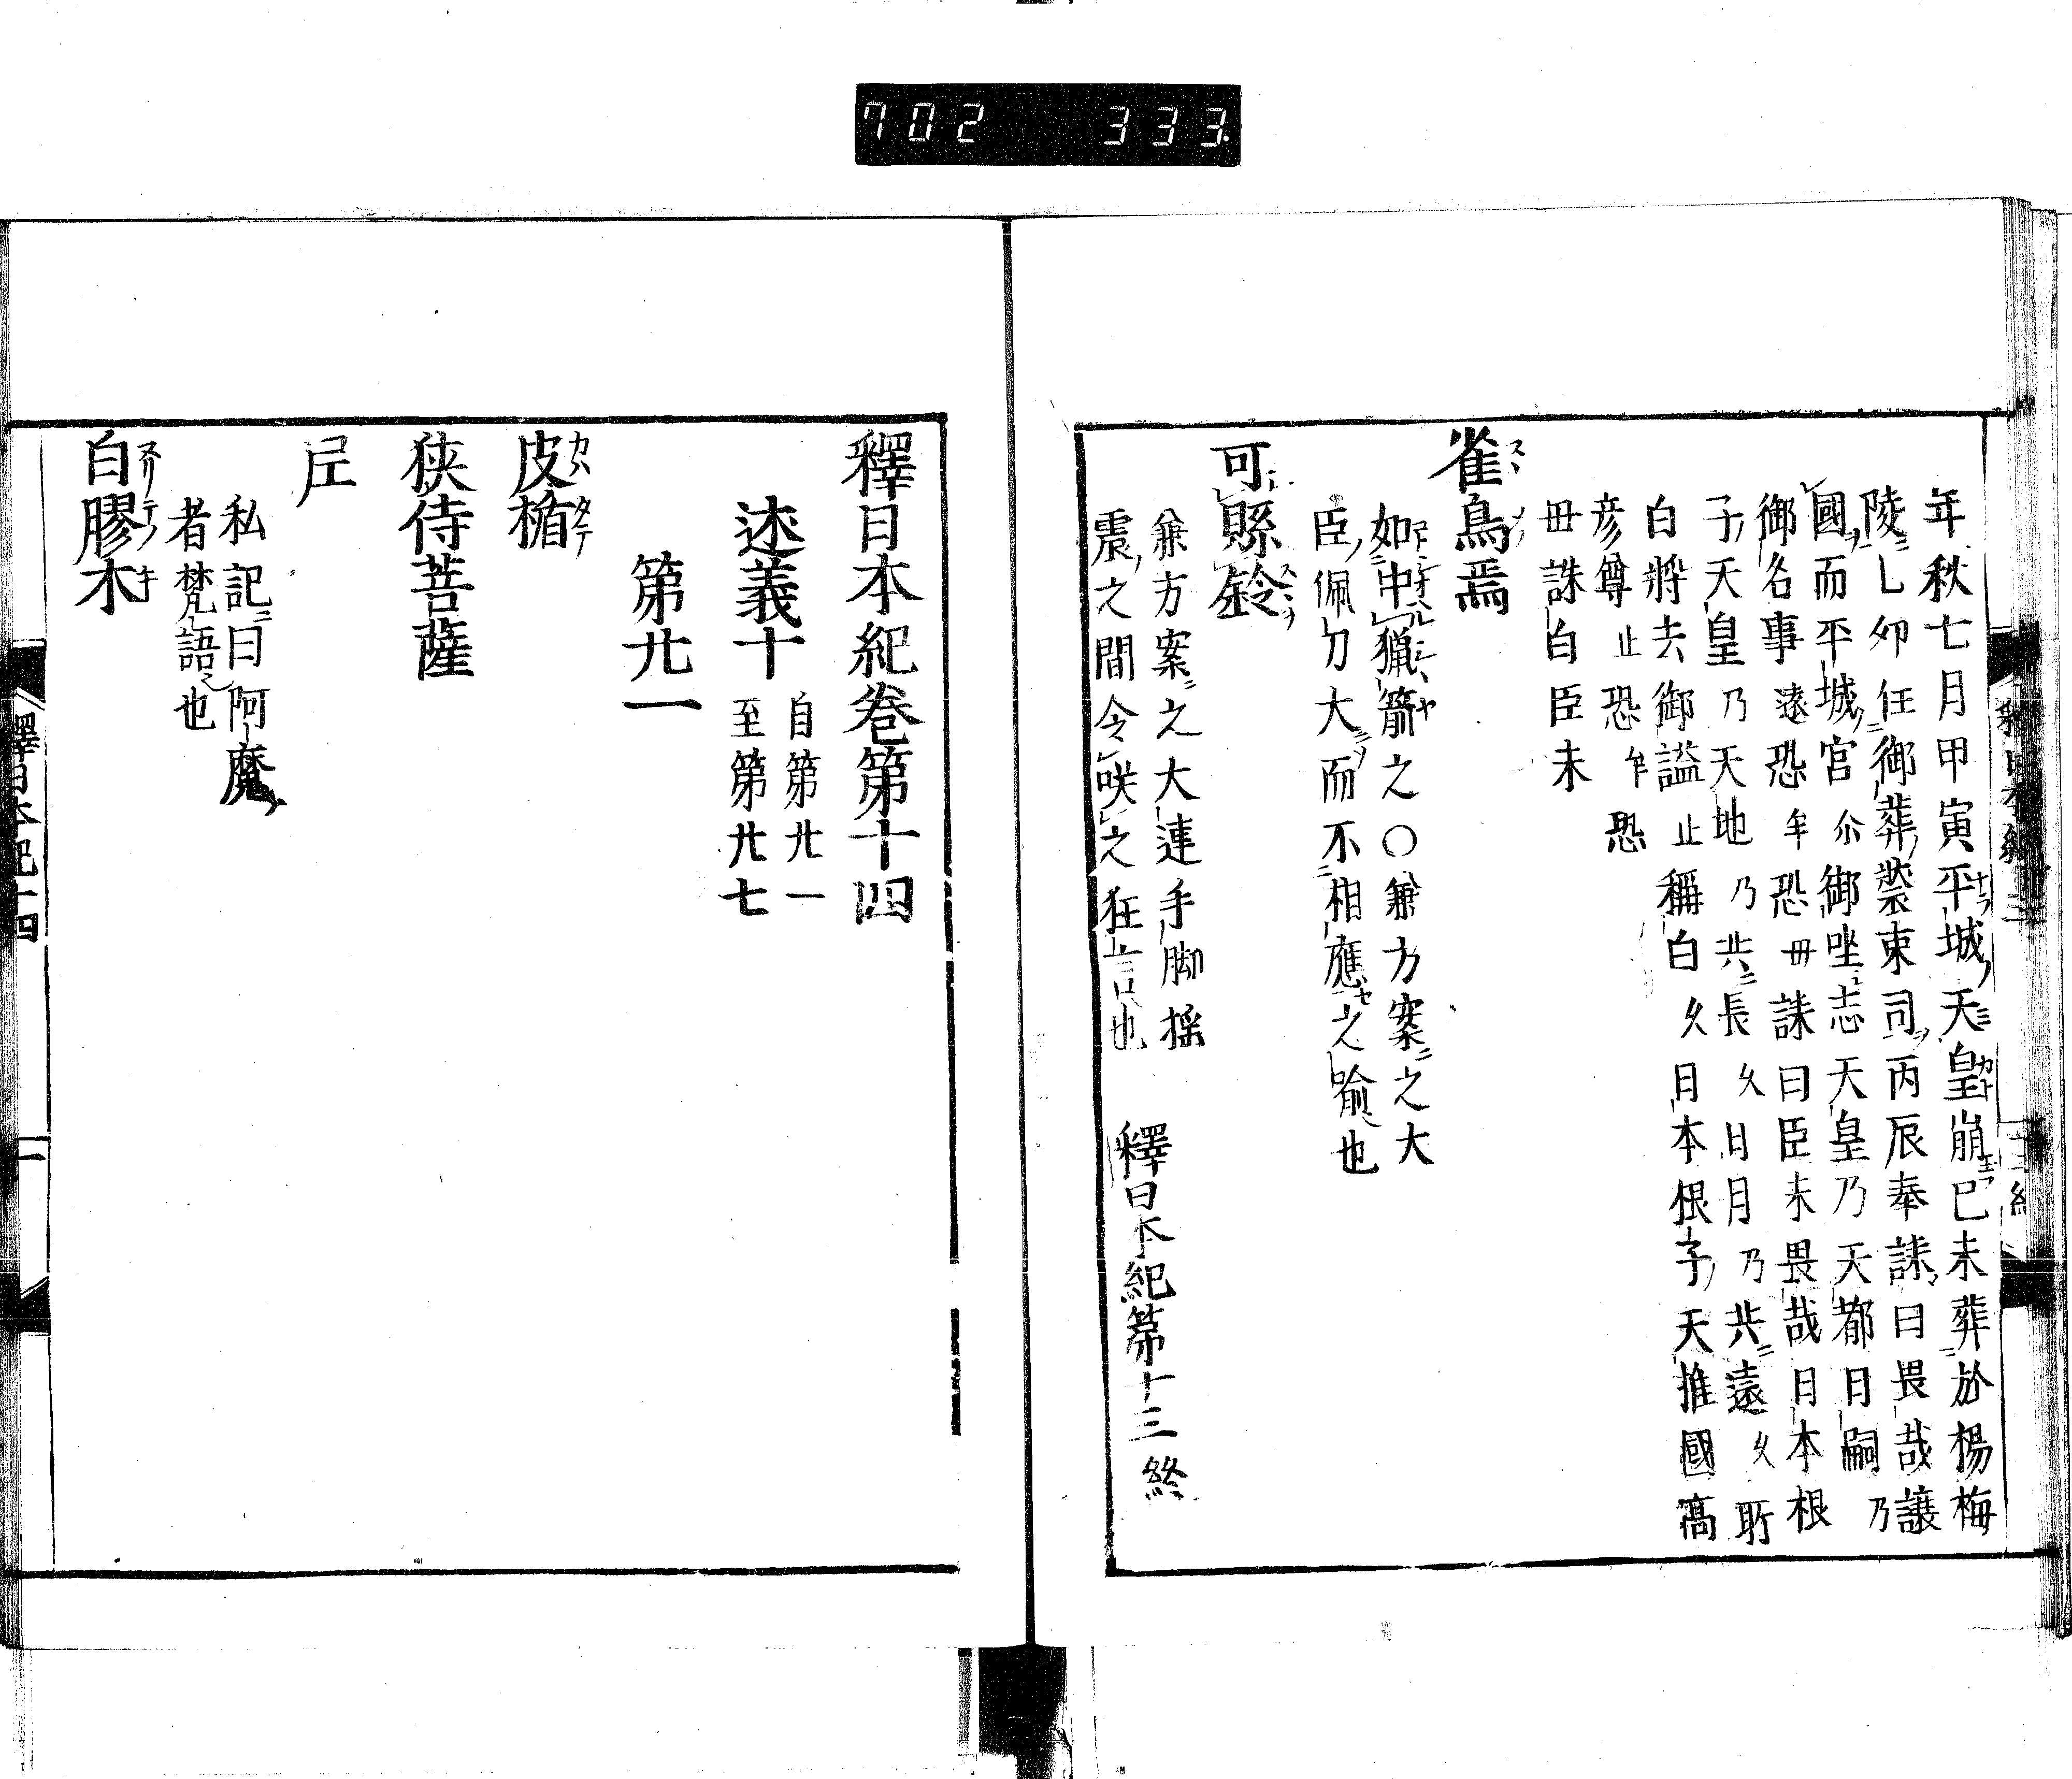 702 333
年秋七月甲寅平城天皇崩已未葬於楊梅
陵乚夘任御葬裝束司丙辰奉誄曰畏哉讓
國而平城宮尒御坐志天皇乃天都日嗣乃
御名事遠恐牟恐毋誄曰臣未畏哉日本根
子天皇乃天地乃共長久日月乃共遠久所
白將去御謚止稱白久日本根子天推國高
彦尊止恐牟恐
毋誄白臣未
雀鳥焉
如中獵箭之〇兼方案之大
臣佩刀大而不相應之喻也
可縣鈴
兼方案之大連手脚搖
震之間令咲之狂言也
釋日本紀第十三終
釋日本紀卷第十四
述義十
自第廿一
至第廿七
第廿一
皮楯
狹侍菩薩
𡰱
私記曰阿魔
者梵語也
白膠木
釋日本紀十四
一